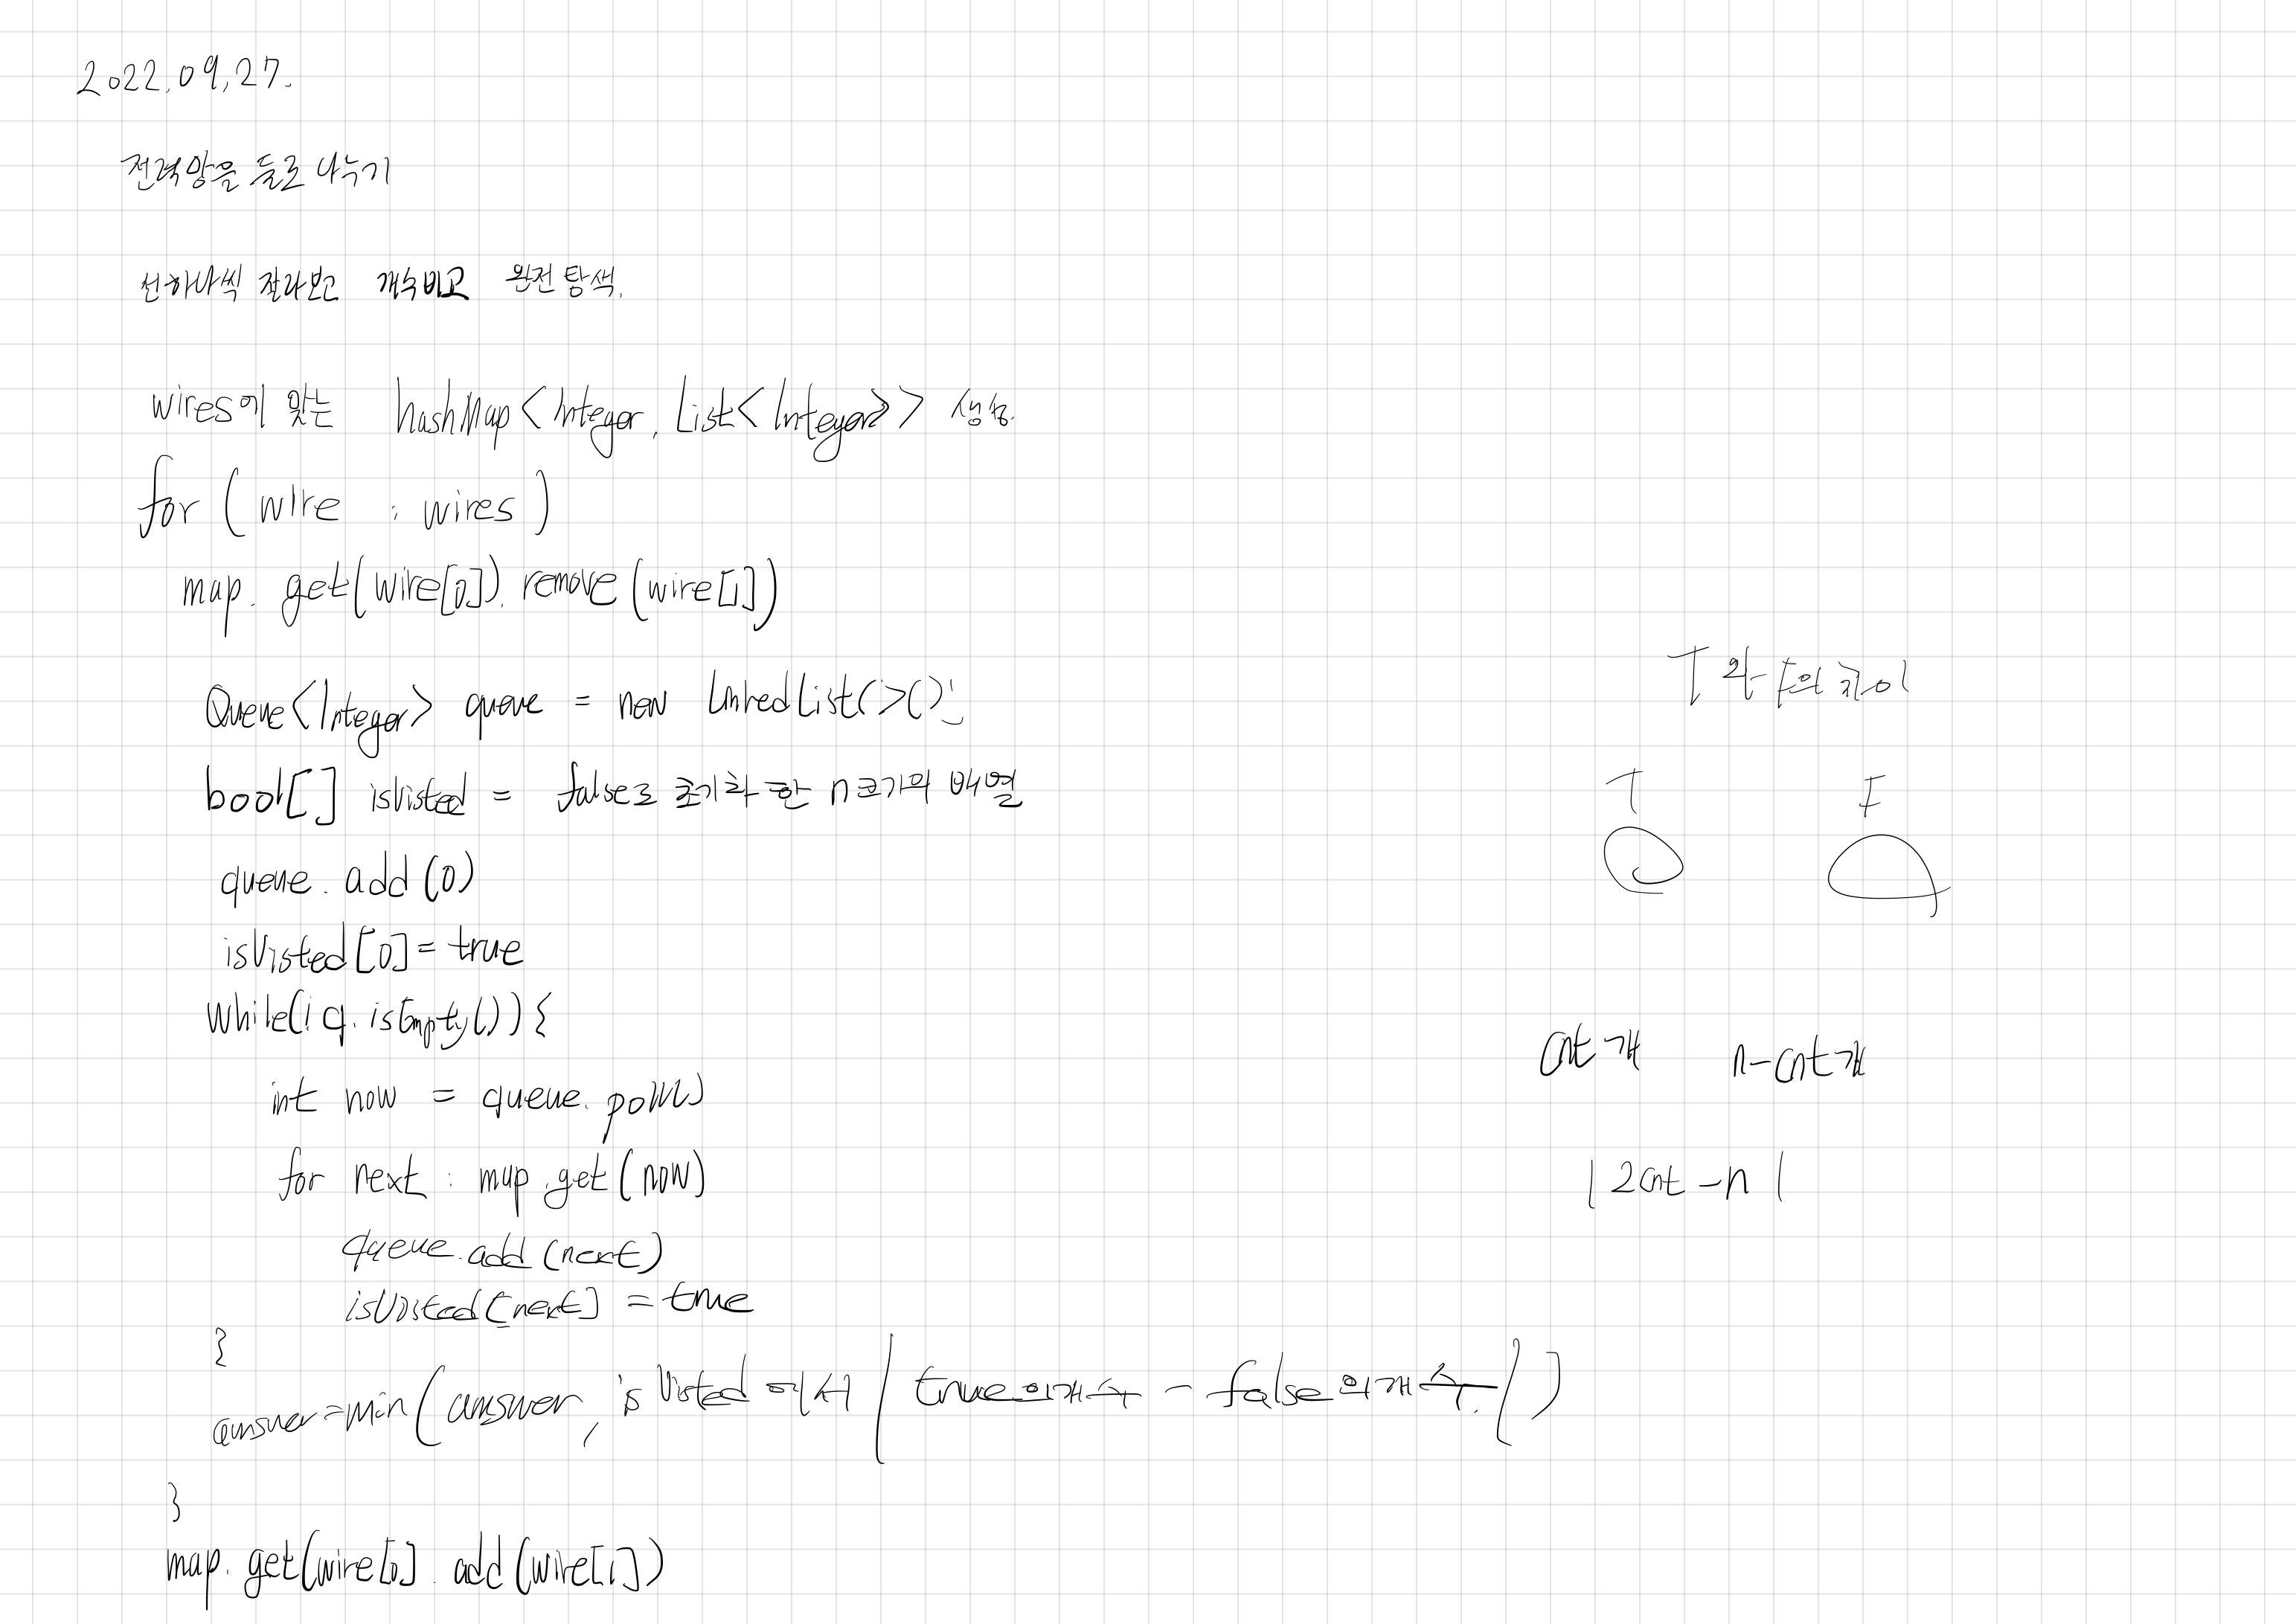 2022.09.27.
전력망을 둘로 나누기
선하나씩 잘라보고 개수비교 완전탐색.
wires에 맞는 hashMap<Integer, List<Integer>> 생성.
for (wire : wires)
map. get(wire[0]). remove (wire[1])
Queue<Integer> queue = new LinkedList<>();
bool[] isVisted = false로 초기화 한 n크기의 배열
queue. add (0)
isVisted [0] = true
while(!q. isEmpty()) {
int now = queue. poll()
for next : map.get(now)
queue.add (next)
isVisted[next] = true
}
answer=min(answer, isVisted 에서 | true의개수 - false의개수 |)
}
map. get(wire[0]. add (wire[1])
T와 F의 차이
T F
cnt개 n-cnt개
| 2cnt - n |